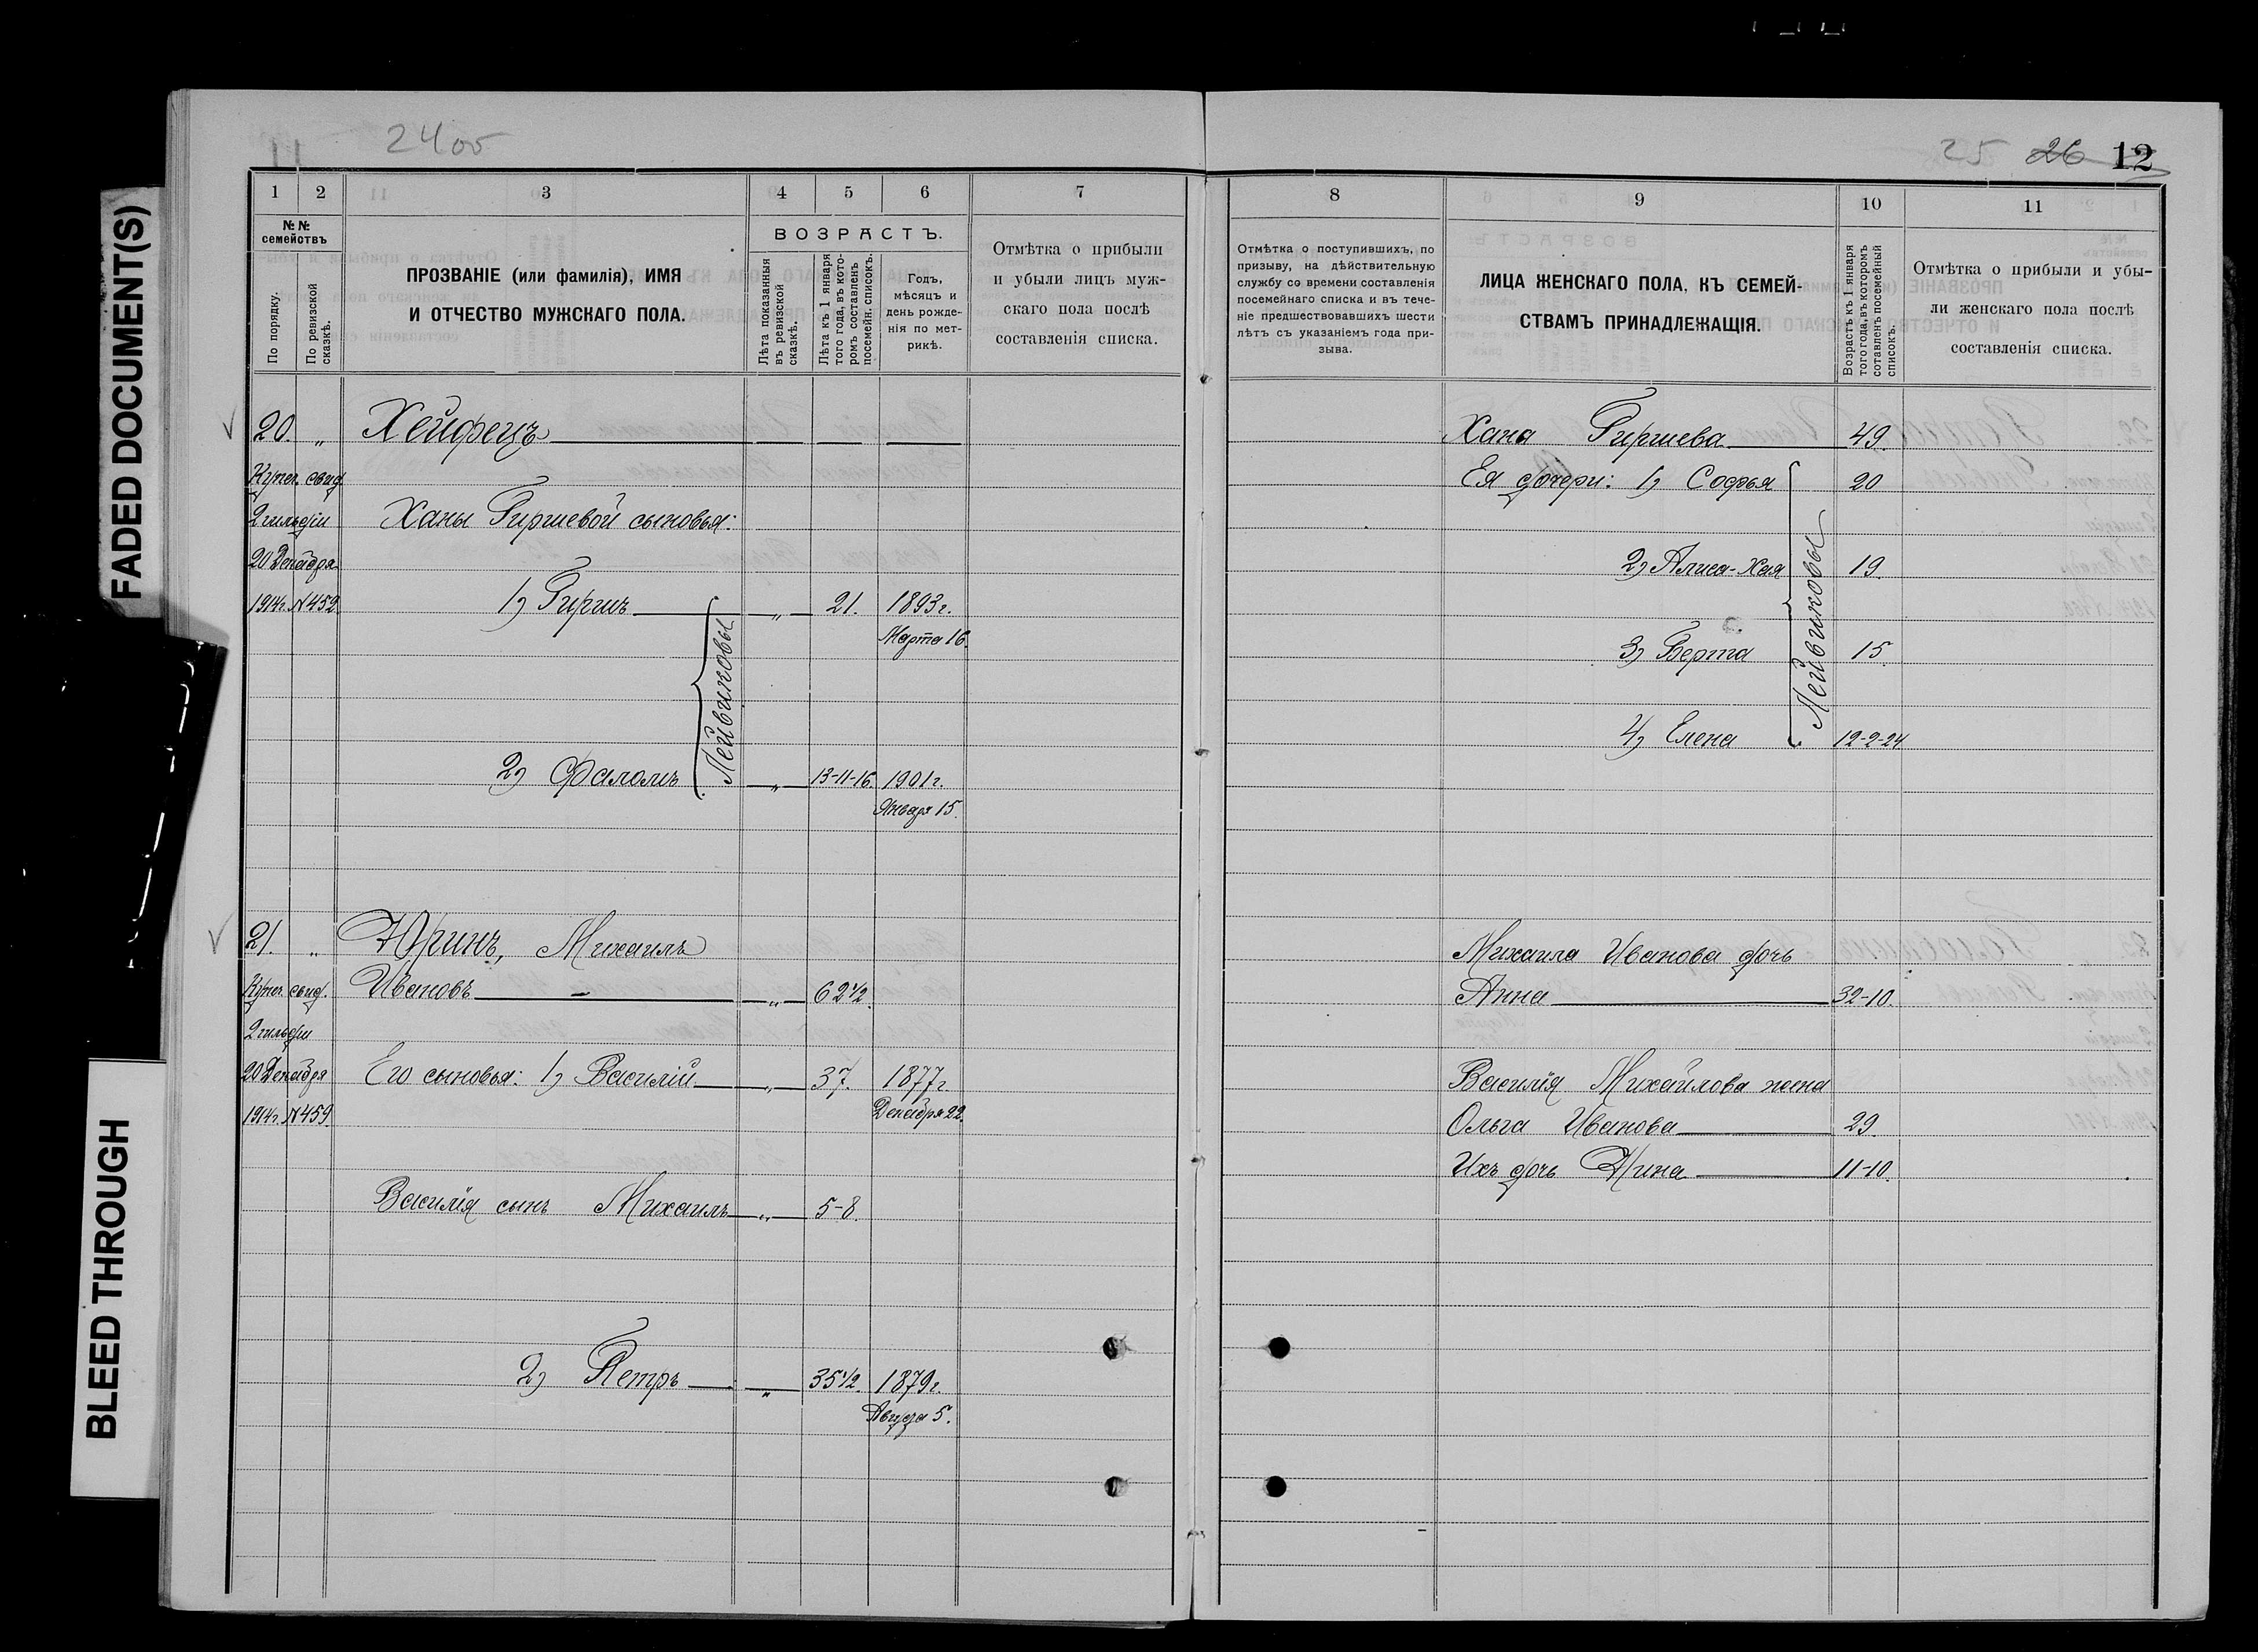 FADED DOCUMENT(S)
BLEED THROUGH
11
24 об
1 2 3 4 5 6 7
№ №
семействъ
По порядку.
По ревизской
сказкѣ.
ПРОЗВАНІЕ (или фамилія), ИМЯ
И ОТЧЕСТВО МУЖСКАГО ПОЛА.
ВОЗРАСТЪ.
Лѣта показанныя
въ ревизской
сказкѣ.
Лѣта къ 1 января
того года, въ кото-
ромъ составленъ
посемейн. списокъ.
Годъ,
мѣсяцъ и
день рожде-
нія по мет-
рикѣ.
Отмѣтка о прибыли
и убыли лицъ муж-
скаго пола послѣ
составленія списка.
20. „ Хейфецъ
Купеч. свид.
2 гильдіи Ханы Гиршевой сыновья:
20 Декабря
1914г. № 452 1) Гиршъ „ 21. 1893г.
Марта 16.
Лейвиковы
2) Фалолъ „ 13-11-16. 1901г.
Января 15.
21. „ Юринъ, Михаилъ
Купеч. свид. Ивановъ „ 62 1/2.
2 гильдіи
20 Декабря Его сыновья: 1) Василій „ 37. 1877г.
1914г. № 459. Декабря 22.
Василія сынъ Михаилъ „ 5-8.
2) Петръ „ 35 1/2. 1879г.
Августа 5.
25 26 12
8 9 10 11
Отмѣтка о поступившихъ, по
призыву, на дѣйствительную
службу со времени составленія
посемейнаго списка и въ тече-
ніе предшествовавшихъ шести
лѣтъ съ указаніемъ года при-
зыва.
ЛИЦА ЖЕНСКАГО ПОЛА, КЪ СЕМЕЙ-
СТВАМЪ ПРИНАДЛЕЖАЩІЯ.
Возрастъ къ 1 января
того года, въ которомъ
составленъ посемейный
списокъ.
Отмѣтка о прибыли и убы-
ли женскаго пола послѣ
составленія списка.
Хана Гиршева 49.
Ея дочери: 1) Софья 20
2) Алиса-Хая 19.
3) Берта 15.
4) Елена 12-2-24
Лейвиковы
Михаила Иванова дочь
Анна 32-10.
Василія Михайлова жена
Ольга Иванова 29.
Ихъ дочь Нина 11-10.